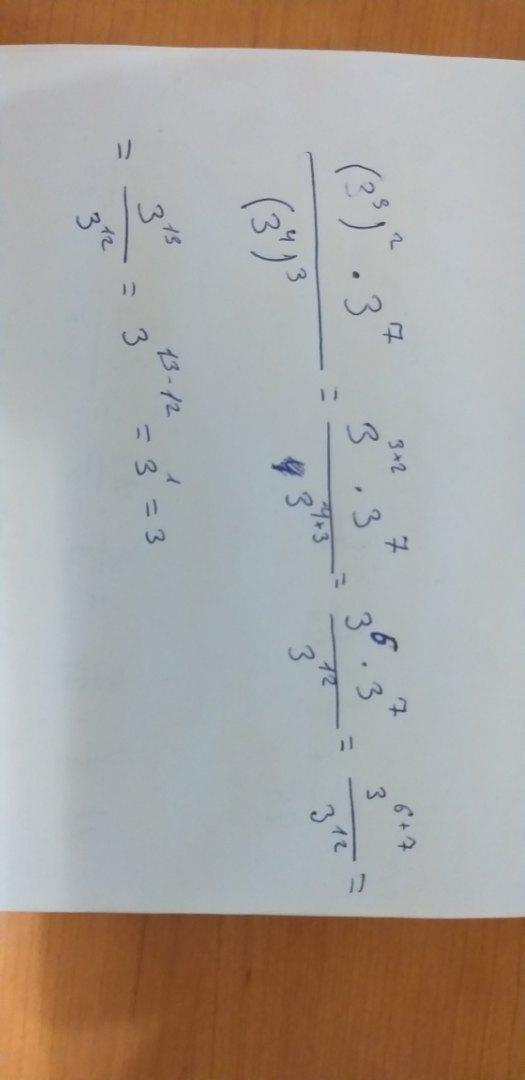 \frac{(3^3)^2 \cdot 3^7}{(3^4)^3} = \frac{3^{3 \times 2} \cdot 3^7}{3^{4 \times 3}} = \frac{3^6 \cdot 3^7}{3^{12}} = \frac{3^{6+7}}{3^{12}} =
= \frac{3^{13}}{3^{12}} = 3^{13-12} = 3^1 = 3